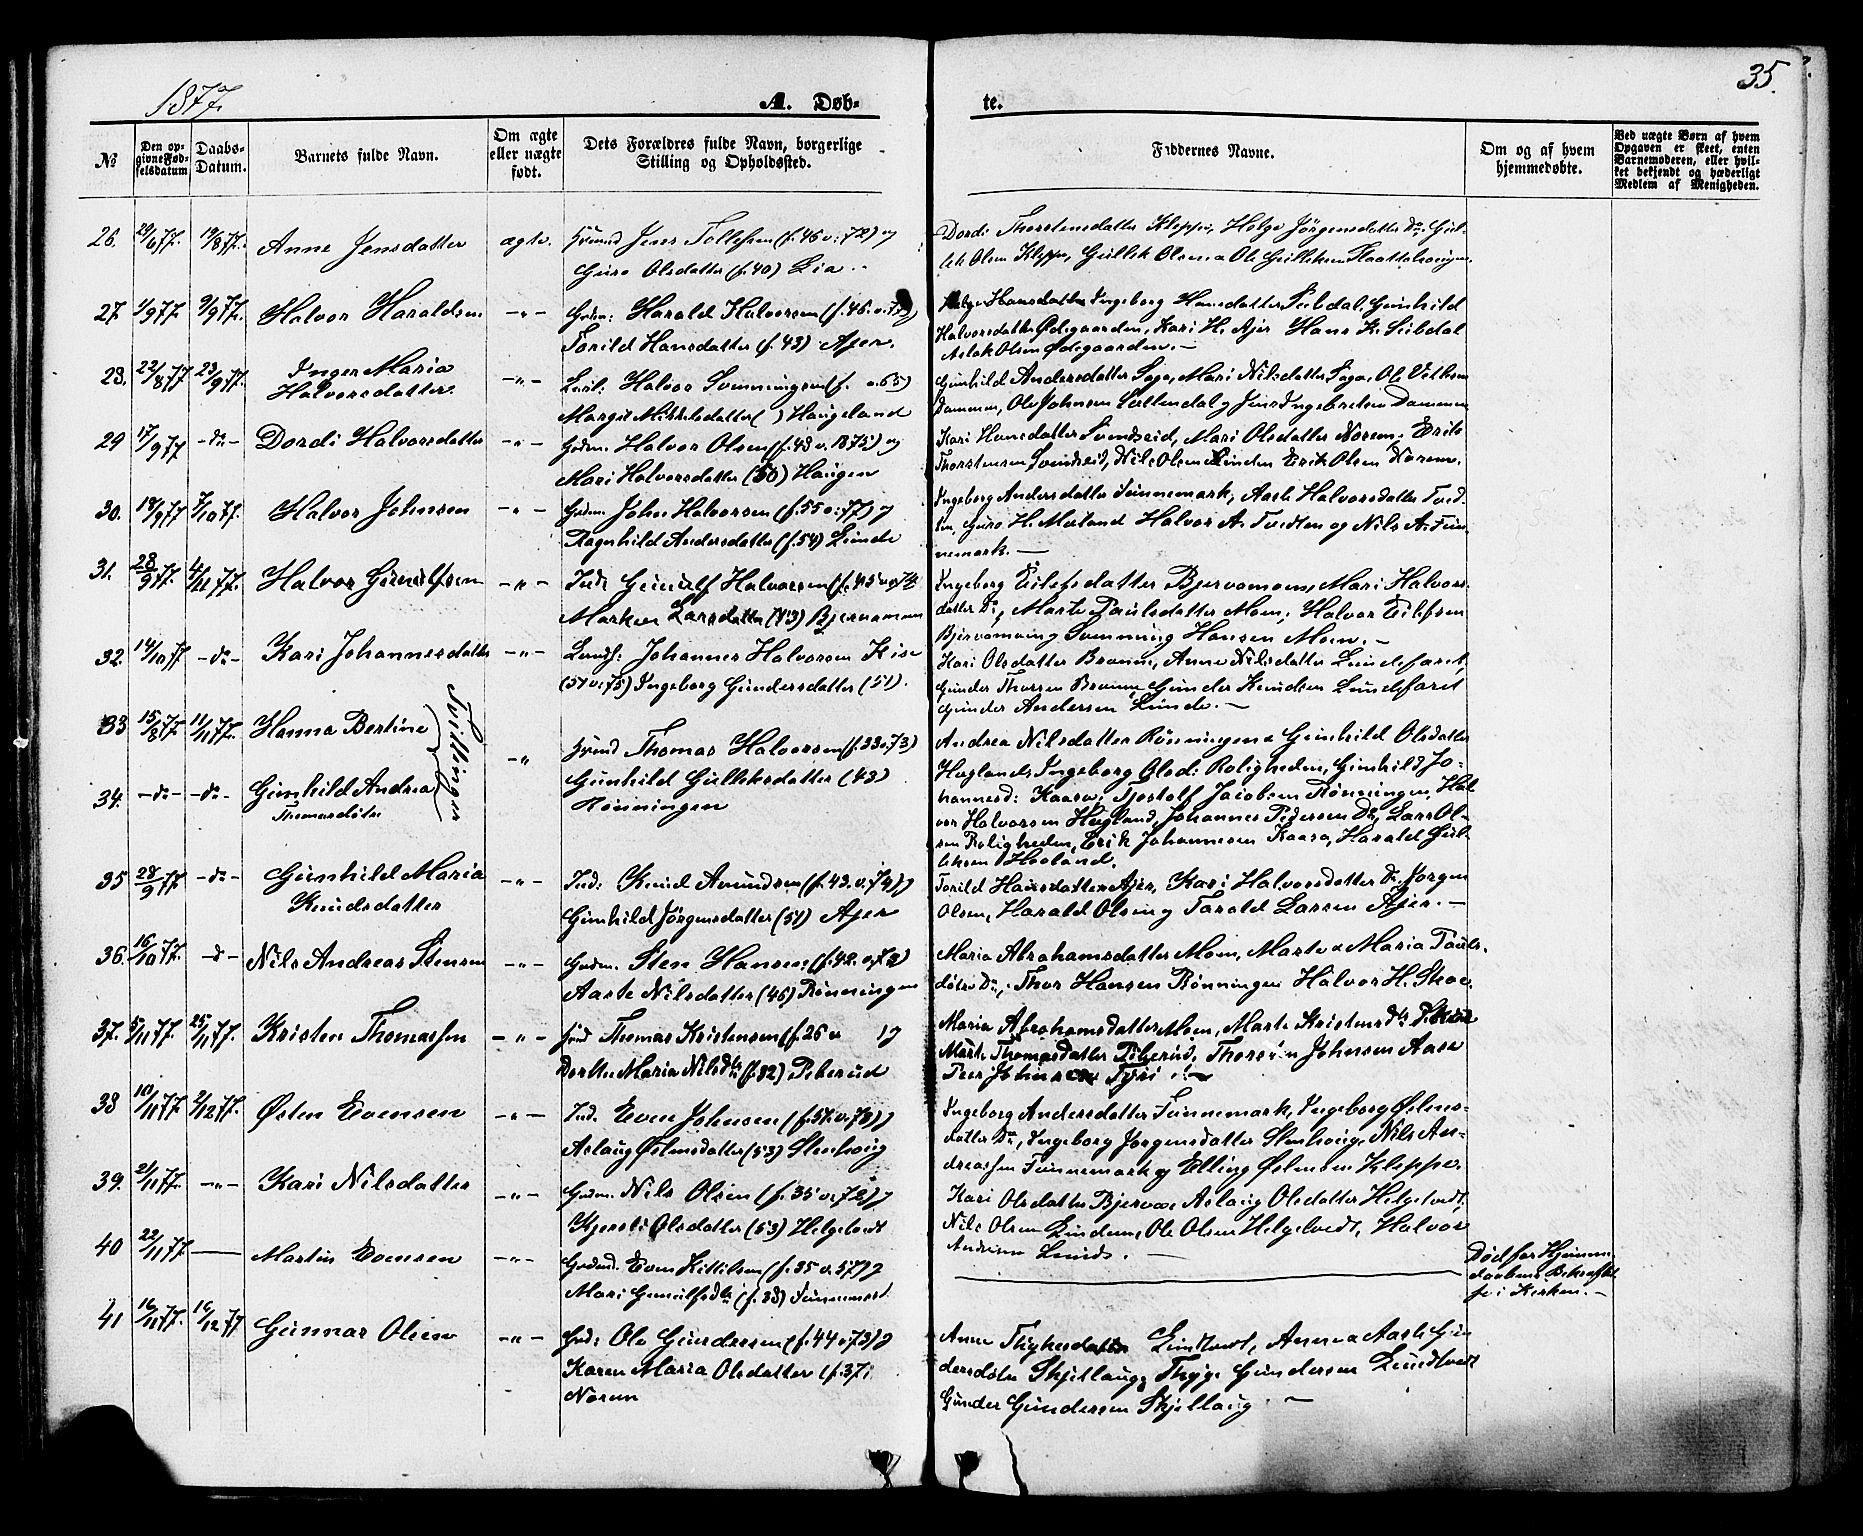 1877.
A. Døb-
te.
35.
No
Den op-
givne Fød-
selsdatum
Daabs-
Datum.
Barnets fulde Navn.
Om ægte
eller uægte
født.
Dets Forældres fulde Navn, borgerlige
Stilling og Opholdssted.
Faddernes Navne.
Om og af hvem
hjemmedøbte.
Ved uægte Børn af hvem
Opgaven er skeet, enten
Barnemoderen, eller hvil-
ket bekjendt og hæderligt
Medlem af Menigheden.
26. 29/6 77. 19/8 77. Anne Jensdatter ægte. Jens Tollefsen (f. 46 v. 72) og
Guro Olsdatter (f. 40) Lia
Dordi Thorstensdatter Kleppe, Helge Jørgensdatter Do. Gul-
lek Olsen Kleppe, Gullek Olsen & Ole Gulliksen
27. 1/9 77. 9/9 77. Halvor Haraldsen -"- Harald Halvorsen (f. 46. v.
Torild Hansdatter (f. 43) Ajer.
Hansdatter Ingeborg Hansdatter Sibdal, Gunhild
Halvorsdatter Ødegaarden, Kari H. Ajer Hans K. Sibdal
Aslak Olsen Ødegaarden. —
28. 22/8 77 23/9 77. Inger Maria
Halvorsdatter. -"- Halvor Svenningsen (f. v. 65)
Margit Mikkelsdatter ( ) Haugeland
Gunhild Andersdatter Saga, Mari Nilsdatter Saga, Ole
Dammen, Ole Johnsen og Jens Ingebretsen Dammen
29 17/9 77 -do- Dordi Halvorsdatter -"- Halvor Olsen (f. 43 v. 1875) og
Mari Halvorsdatter (50) Haugen
Kari Hansdatter Svendseid, Mari Olsdatter Norem, Erik
Thorstensen Svendseid, Nils Olsen Linden Erik Olsen Norem.
30. 18/9 77 7/10 77. Halvor Johnsen -"- John Halvorsen (f. 55 v. 77) og
Ragnhild Andersdatter (f. 54) Lunde
Ingeborg Andersdatter Funnemark, Aaste Halvorsdatter Tved-
ten, Guro H. Halvor A. Tvedten og Nils A. Fun-
nemark. —
31. 28/9 77. 4/11 77. Halvor Gunulfsen -"- Ind: Gunulf Halvorsen (f. 45 v. 74
Larsdatter (43)
Ingeborg Eilefsdatter Bjervamoen, Mari Halvors-
datter Do, Marte Paulsdatter Moen, Halvor Eilefsen
Bjervamoen og Svenning Hansen Moen. —
32. 14/10 77 -do- Kari Johannesdatter -"- Johannes Halvorsen Kise
(51 v. 75) Ingeborg Gundersdatter (51).
Kari Olsdatter Brenne, Anne Nilsdatter Lundefaret,
Gunder Thorsen Gunder Knudsen Lundefaret
Gunder Andersen Lunde. —
33 15/8 77. 11/11 77. Hanna Bertine
Tvillinger
34. -do- -do- Gunhild Andrea
Thomasdøtre -" Thomas Halvorsen (f. 33 v. 73)
Gunhild Gulleksdatter (43)
Rønningen
Andrea Nilsdatter Rønningen & Gunhild Olsdatter
Hogland, Ingeborg Olsd: Roligheden, Gunhild Jo-
hannesd: Kaasa, Tjostolf Jacobsen Rønningen, Hal-
vor Halvorsen Hogland, Johannes Pedersen Do, Lars Ol-
sen Roligheden, Erik Johannesen Kaasa, Harald Gul-
leksen
35 28/9 77. -do- Gunhild Maria
Knudsdatter -"- Ind: Knud Amundsen (f. 43. v. 74) og
Gunhild Jørgensdatter (51) Ajer
Torild Hansdatter Ajer, Kari Halvorsdatter Do, Jørgen
Olsen, Harald Olsen og Tarald Larsen Ajer. —
36. 16/10 77. -do- Nils Andreas Stensen -"- Sten Hansen (f. 42. v. 72)
Aaste Nilsdatter (46) Rønningen
Maria Abrahamsdatter Moen, Marte & Maria Pauls-
døtre Do, Thor Hansen Rønningen Halvor H. Skoe.
37. 5/11 77. 25/11 77. Kristen Thomassen -"- Thomas Kristensen (f. 26 v ) og
Dorthe Maria Nilsdtr (f. 32) Peberud
Maria Abrahamsdatter Moen, Marte Kristensdtr
Marte Thomasdatter Peberud, Johnsen Aase
Peer
38 10/11 77. 2/12 77. Østen Evensen -"- Ind. Even Johnsen (f. 51. v. 78) og
Aslaug Østensdatter (53) Stenhoug
Ingeborg Andersdatter Funnemark, Ingeborg Østens-
datter Do, Ingeborg Jørgensdatter Stenhoug, Nils An-
dreassen Funnemark og Elling Østensen Kleppe.
39. 21/11 77. -"- Kari Nilsdatter -"- Nils Olsen (f. 35 v. 72) og
Kjersti Olsdatter (53) Helgetvedt
Kari Olsdatter Bjerva & Aslaug Olsdatter Helgetvedt,
Nils Olsen Linden, Ole Olsen Helgetvedt, Halvor
Andersen Lunde. —
40 22/11 77. — Martin Evensen -"- Even Kittilsen (f. 35 v. 57) og
Mari Gunulfsdtr (f. 33) Funnemark
Død før Hjemme-
daabens Bekræftel-
se i Kirken. —
41 16/11 77. 16/12 77 Gunnar Olsen -"- Ole Gundersen (f. 44 v. 73) og
Karen Maria Olsdatter (f. 37)
Norem
Anne Lindtvedt, Anne & Aaste Gun-
dersdøtre Skjellaug, Thyge Gundersen Lindtvedt
Gunder Gundersen Skjellaug. —